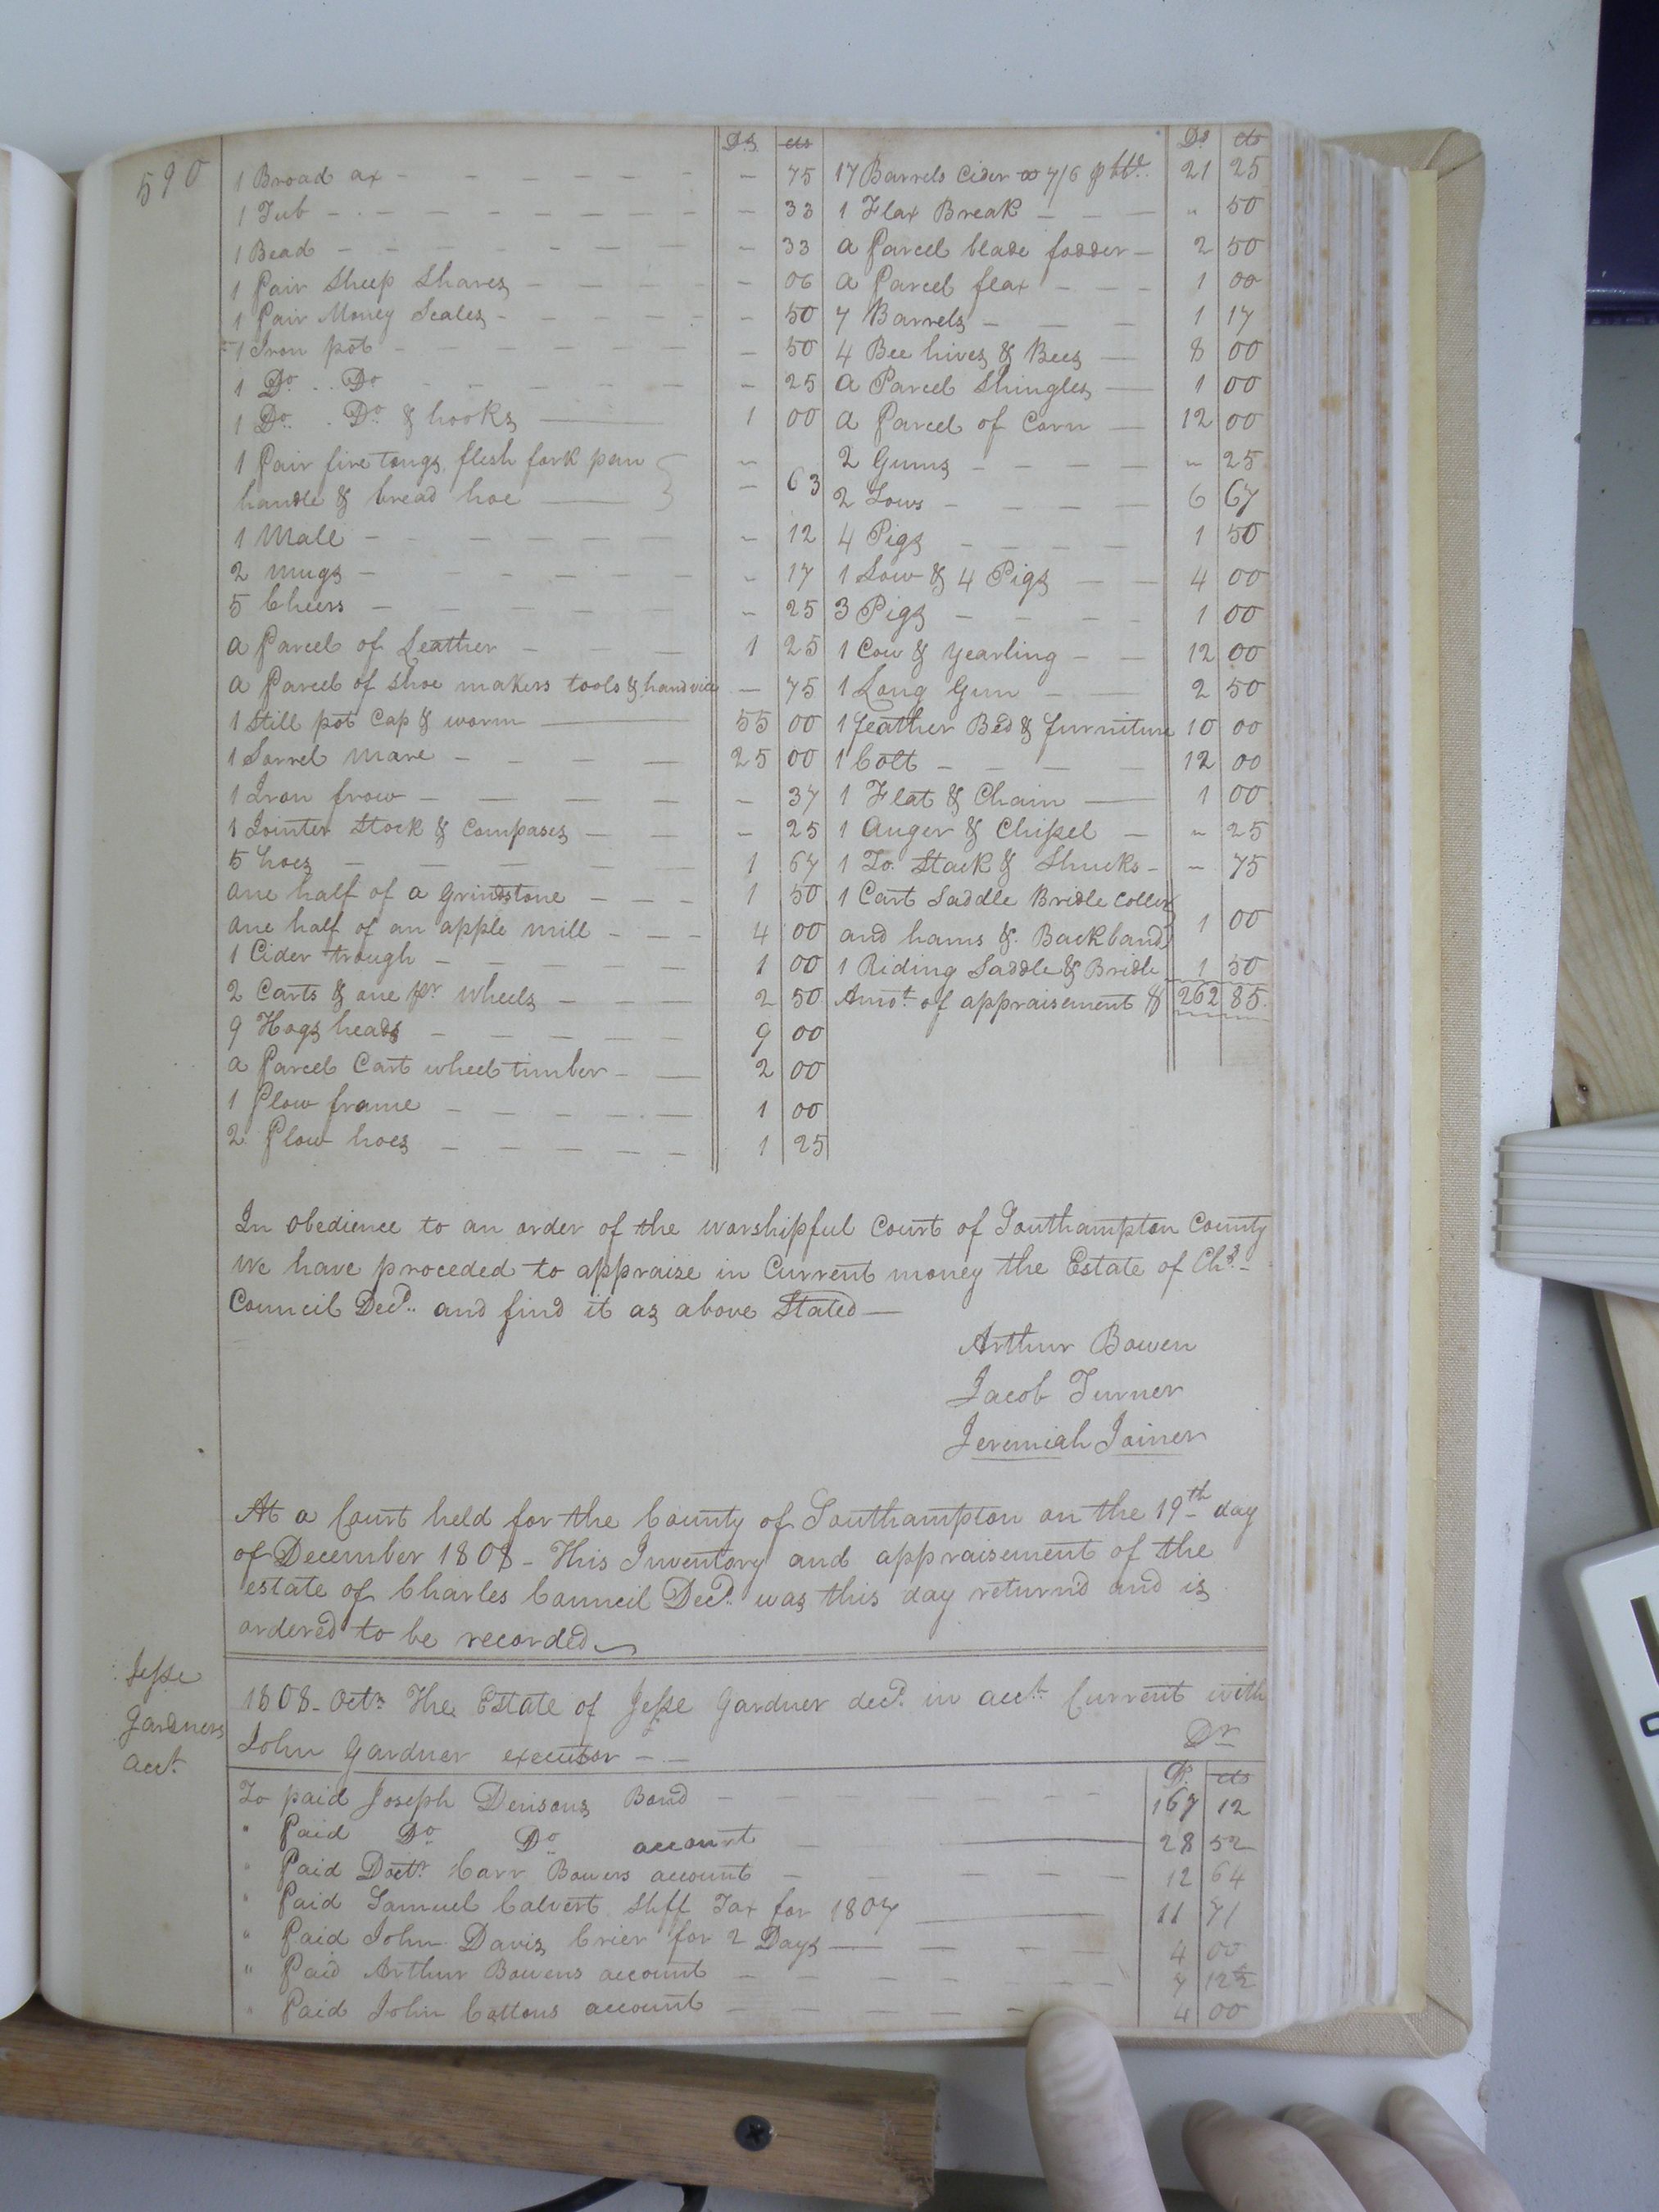 590
Ds. cts
1 Broad ax - - - - - - - - 75
1 Tub - - - - - - - - - 33
1 Bead - - - - - - - - 33
1 Pair Sheep Shares - - - - - - 06
1 Pair Money Scales - - - - - - - 50
1 Iron pot - - - - - - - 50
1 Do. . Do - - - - - - - 25
1 Do. . Do. & hooks — 1 00
1 Pair fire tongs flesh fork pan -
handle & bread hoe — - 63
1 Male - - - - - - - - 12
2 mugs - - - - - - - - 17
5 Cheers - - - - - - - 25
a Parcel of Leather - - - 1 25
a Parcel of shoe makers tools & hand vice - 75
1 Still pot Cap & worm — 55 00
1 Sorrel mare - - - - 25 00
1 Iron frow - - - - - 37
1 Jointer Stock & Compases - - - 25
5 hoes - - - - - 1 67
one half of a Grindstone - - - 1 50
one half of an apple mill - - - 4 00
1 Cider trough - - - - - 1 00
2 Carts & one pr. wheels - - - 2 50
9 Hogs heads - - - - - 9 00
a Parcel Cart wheel timber - - 2 00
1 Plow frame - - - - - 1 00
2 Plow hoes - - - - - 1 25
Ds cts
17 Barrels Cider @ 7/6 21 25
1 Flax Break - - - " 50
a Parcel blade fodder - 2 50
a Parcel flax - - - 1 00
7 Barrels - - - 1 17
4 Bee hives & Bees — 8 00
a Parcel Shingles — 1 00
a Parcel of Corn — 12 00
2 Gums - - - - " 25
2 Sows - - - - 6 67
4 Pigs - - - - 1 50
1 Sow & 4 Pigs - - 4 00
3 Pigs - - - - 1 00
1 Cow & Yearling - - 12 00
1 Long Gun - — 2 50
1 feather Bed & furniture 10 00
1 Colt - - - - 12 00
1 Flat & Chain — 1 00
1 Auger & Chissel - " 25
1 To. Stack & Shucks - - 75
1 Cart Saddle Bridle Coller
and hams & Backband 1 00
1 Riding Saddle & Bridle 1 50
Amot. of appraisement $ 262 85
In obedience to an order of the worshipful Court of Southampton County
We have proceded to appraise in Current money the Estate of Chs.
Council Decd.. and find it as above Stated—
Arthur Bowen
Jacob Turner
Jeremiah Joiner
At a Court held for the County of Southampton on the 19th day
of December 1808 - This Inventory and appraisement of the
estate of Charles Council Decd. was this day returnd and is
ordered to be recorded
Jesse
Gardners
acct.
1808. Octr. The Estate of Jesse Gardner decd. in acct. Current with
John Gardner executor - - Dr
Ds. cts
To paid Joseph Denisons Bond - - - - - 167 12
" Paid Do Do account - — 28 52
" Paid Doctr. Carr Bowers account - - - - 12 64
" Paid Samuel Calvert Shff Tax for 1807 — 11 71
" Paid John Davis Crier for 2 Days — - - - 4 00
" Paid Arthur Bowens account - - - - - - 7 12½
" Paid John Cottons account - - - - - 4 00